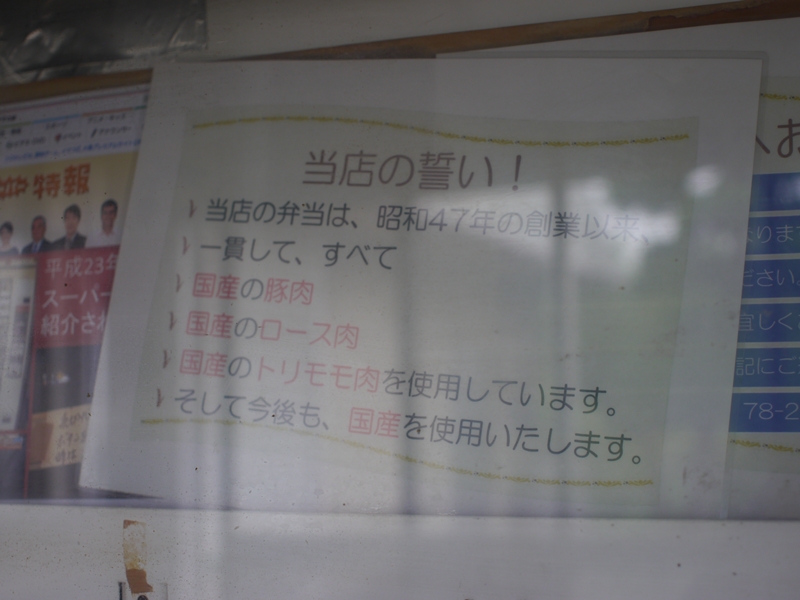 当店の誓い！
当店の弁当は、昭和47年の創業以来、
一貫して、すべて
国産の豚肉
国産のロース肉
国産のトリモモ肉を使用しています。
そして今後も、国産を使用いたします。
特報
平成23年
スーパー
紹介され
へお
なります
ださい
宜しく
記にご
78-2